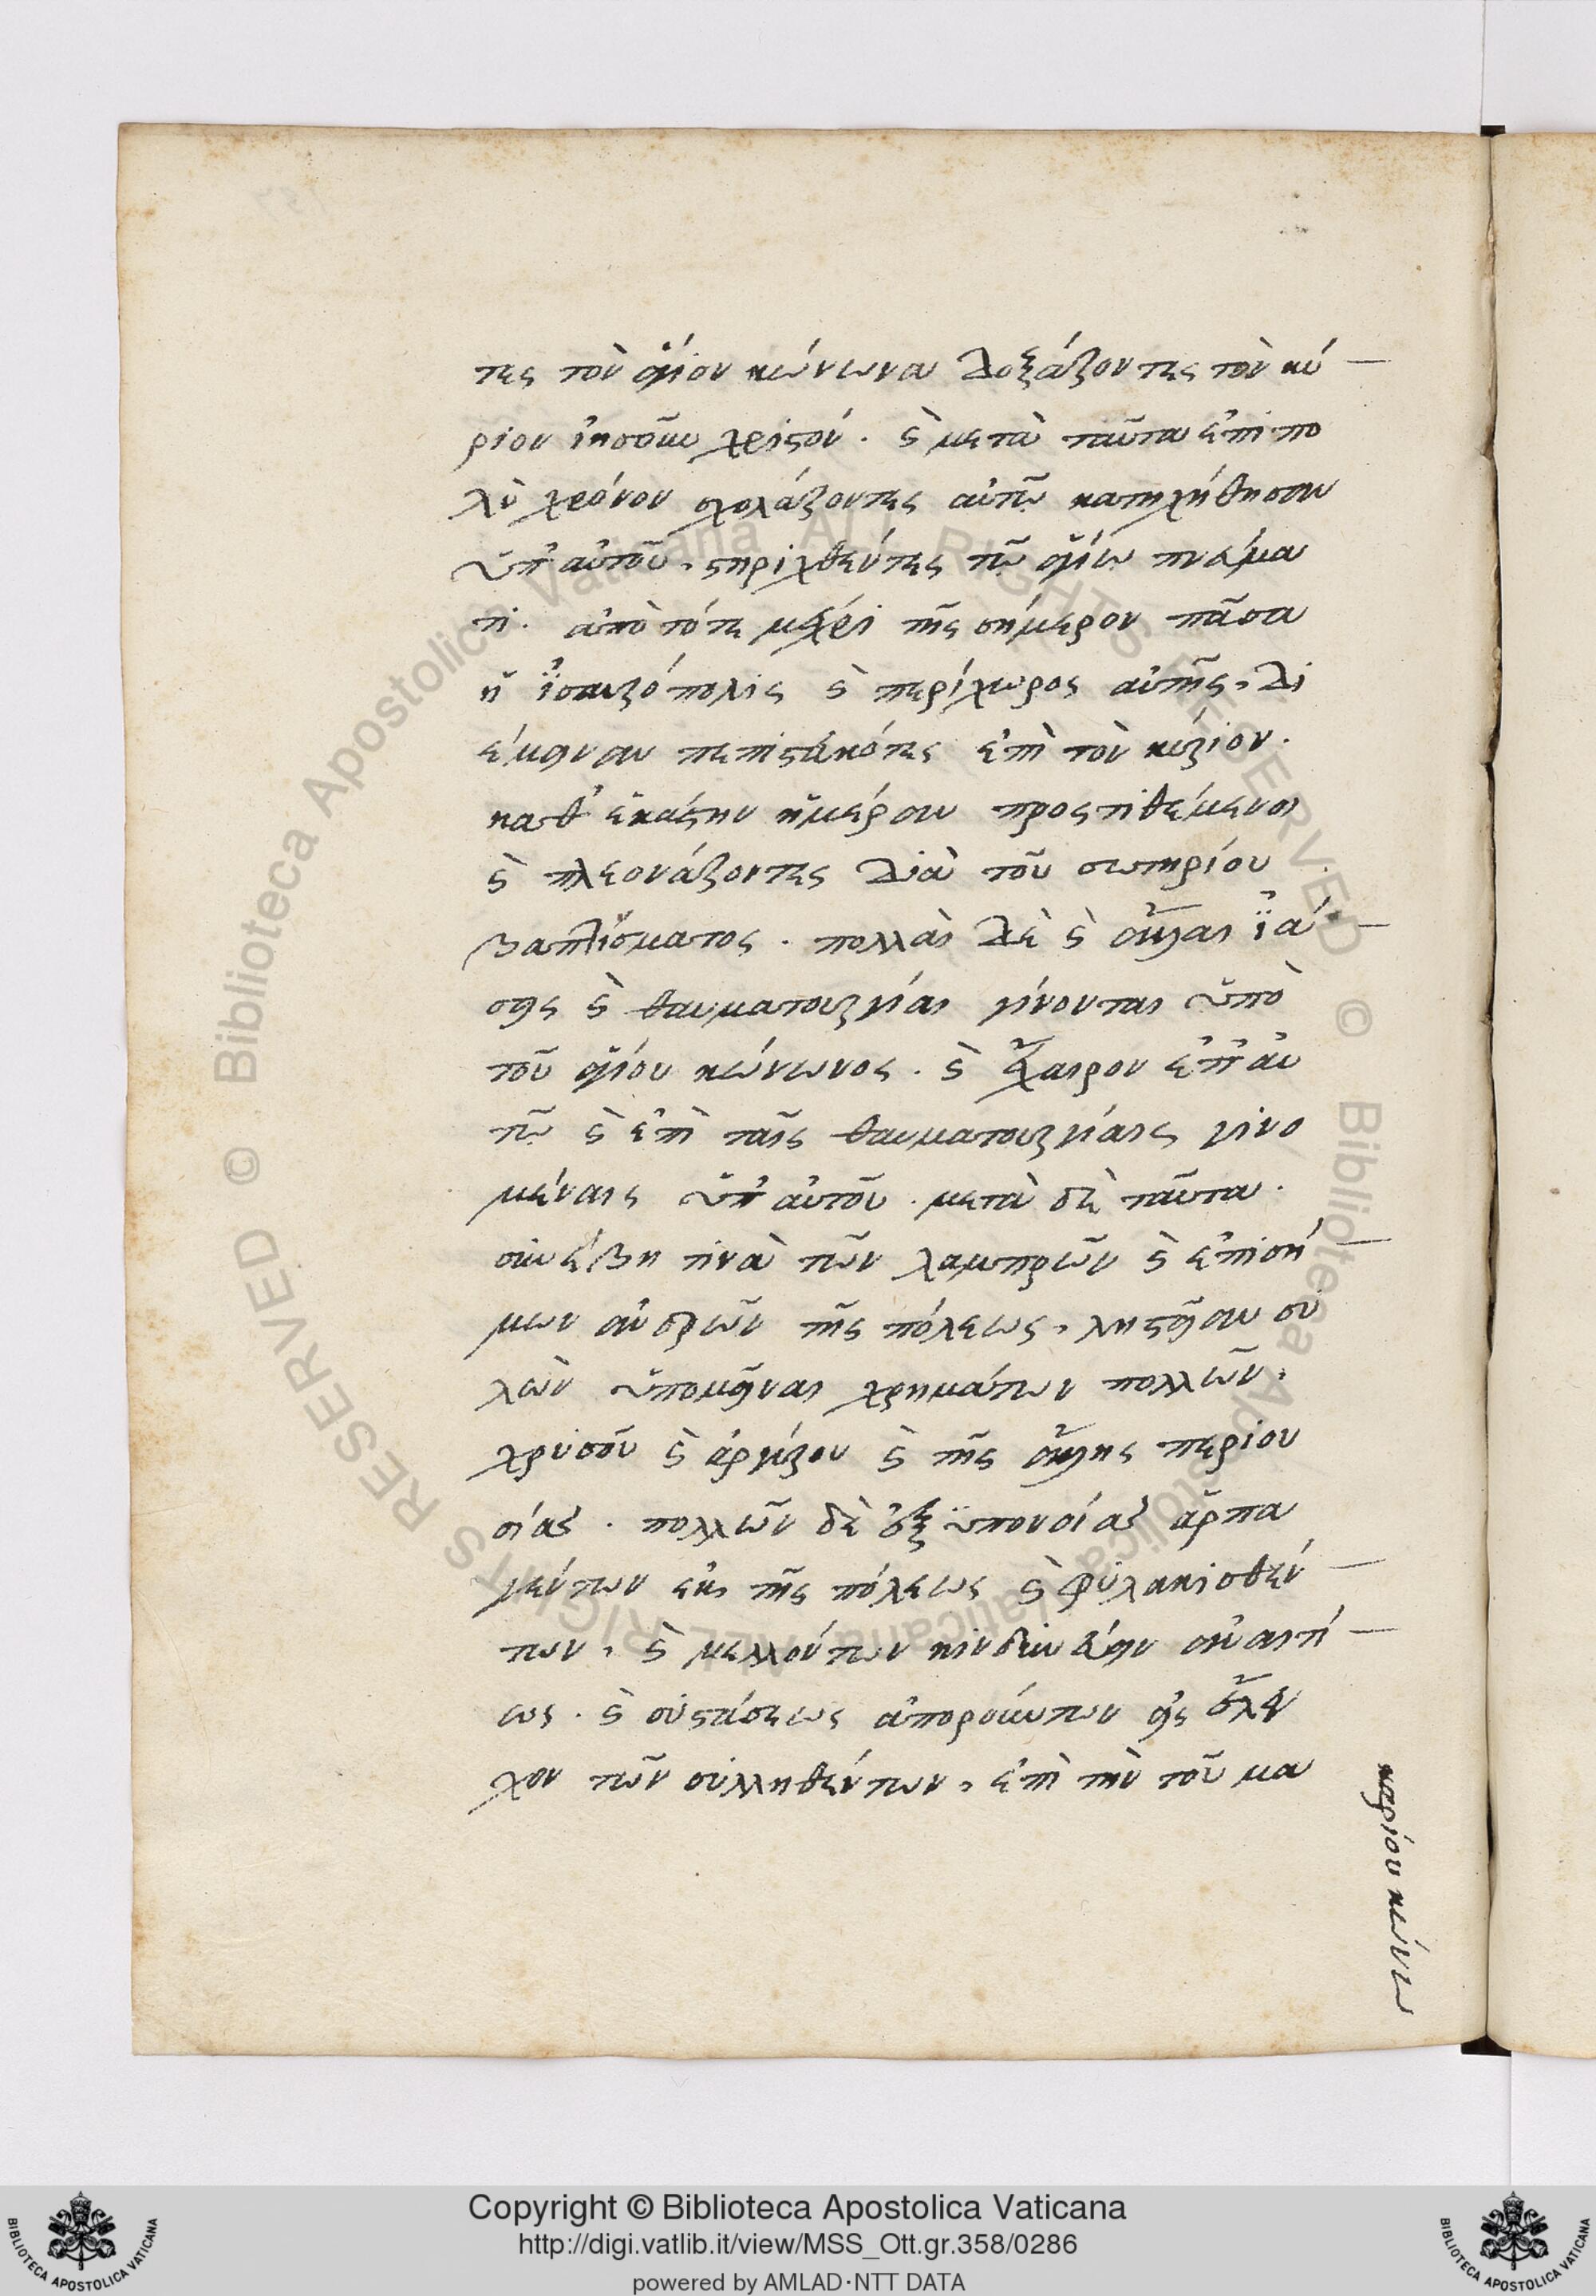 τες τὸν ἅγιον κώνωνα δοξάζοντες τὸν κύ
ριον ἰησοῦν χριστόν. καὶ μετὰ ταῦτα ἐπὶ πο
λὺ χρόνον σχολάζοντες αὐτῶ κατηχήθησαν
ὑπ' αὐτοῦ, στηριχθέντες τῶ ἁγίω πνεύμα
τι. ἀπὸ τότε μέχρι τῆς σήμερον πᾶσα
ἡ ἰσαυρόπολις καὶ περίχωρος αὐτῆς, δι
έμειναν πεπιστευκότες ἐπὶ τὸν κύριον.
καθ' ἑκάστην ἡμέραν προστιθέμενοι
καὶ πλεονάζοντες διὰ τοῦ σωτηρίου
βαπτίσματος. πολλαὶ δὲ καὶ ἄλλαι ἰά
σεις καὶ θαυματουργίαι γίνονται ὑπὸ
τοῦ ἁγίου κώνωνος. καὶ ἔχαιρον ἐπ' αυ
τῶ καὶ ἐπὶ ταῖς θαυματουργίαις γινο
μέναις ὑπ' αὐτοῦ. μετὰ δὲ ταῦτα.
συνέβη τινὰ τῶν λαμπρῶν καὶ ἐπισή
μων ἀνδρῶν τῆς πόλεως, ληστείαν οὐ
λὼν ὑπομεῖναι χρημάτων πολλῶν,
χρυσοῦ καὶ ἀργύρου καὶ τῆς ἄλλης περιου
σίας. πολλῶν δὲ ἐξ ὑπονοίας ἁρπα
γέντων ἐκ τῆς πόλεως καὶ φυλακισθέν
των, καὶ μελλόντων κινδυνεύειν ἀναιτί
ως. καὶ συστάσεως ἀπορούντων εἰς ἔλεγ
χον τῶν συλληφθέντων, ἐπὶ τὴν τοῦ μα
καρίου κώνω
Copyright © Biblioteca Apostolica Vaticana
http://digi.vatlib.it/view/MSS_Ott.gr.358/0286
powered by AMLAD·NTT DATA